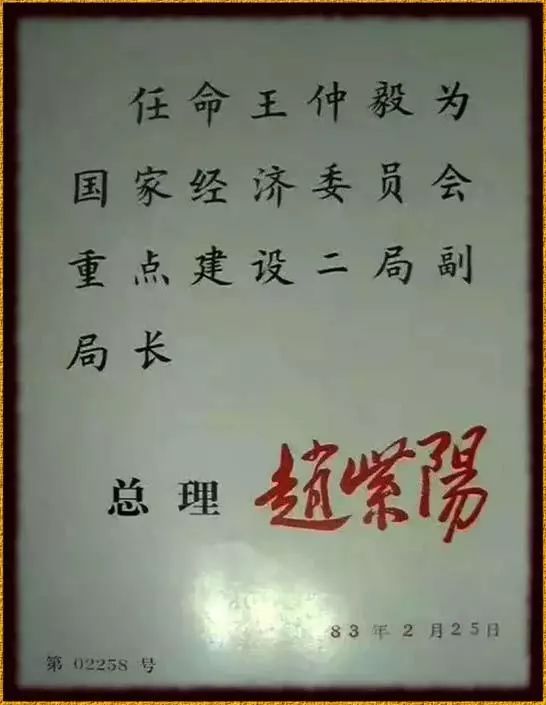 任命王仲毅为
国家经济委员会
重点建设二局副
局长
总理 趙紫陽
83年2月25日
第 02258 号